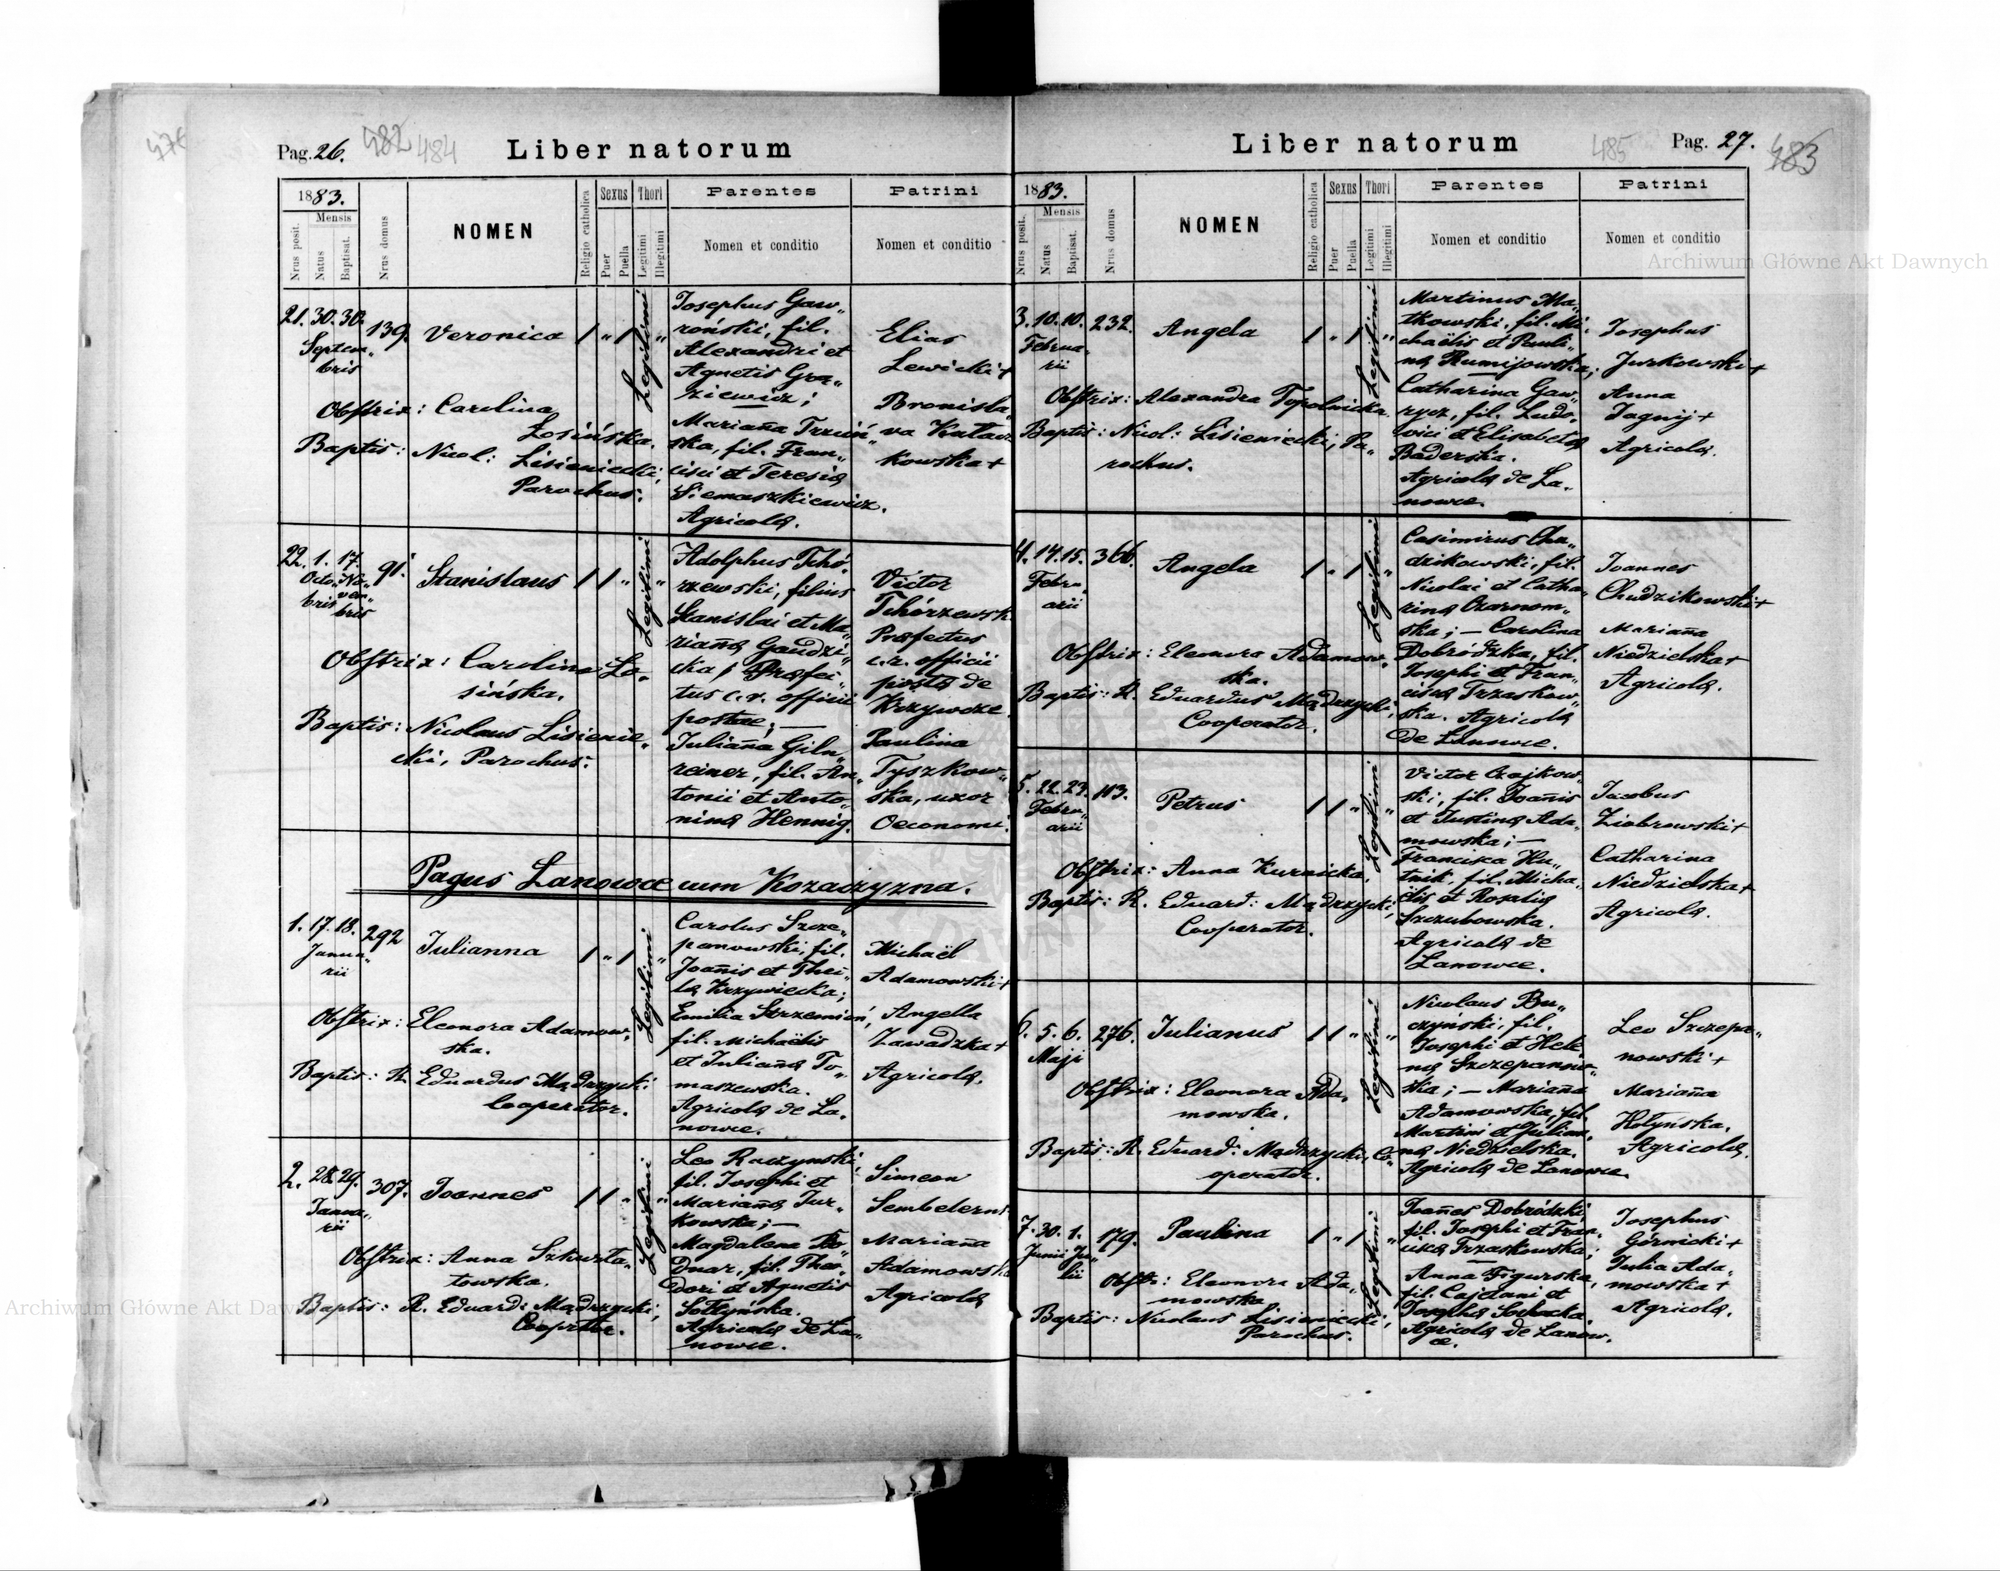 476
Pag. 26.
482 484
Liber natorum
1883.
Mensis
Nrus posit.
Natus
Baptisat.
Nrus domus
NOMEN
Religio catholica
Sexus
Puer
Puella
Thori
Legitimi
Illegitimi
Parentes
Nomen et conditio
Patrini
Nomen et conditio
21. 30. 30. 139. Veronica
Septem„
bris
Legitimi
Obstrix: Carolina
Łosińska.
Baptis: Nicol: Lisieniecki,
Parochus.
Josephus Gaw„
roński, fil.
Alexandri et
Agnetis Gra„
ziewicz;
Mariaña Trzciń„
ska, fil. Fran„
cisci et Teresia
Siemaszkiewicz.
Agricola.
Elias
Lewicki +
Bronisła„
va
kowska +
22. 1. 17. 91. Stanislaus
Octo„ No„
bris vem„
bris
Legitimi
Obstrix: Carolina Ło„
sińska.
Baptis: Nicolaus Lisienie„
cki, Parochus.
Adolphus Tchó„
rzewski, filius
Stanislai et Ma„
riaña Gaudzi„
cka, Præfec„
tus c. r. officii
postae; —
Juliaña Giln„
reiner, fil. An„
tonii et Anto„
nina Hennig.
Victor
Tchórzewsk.
Præfectus
c. r. officii
posta de
Krzywcze.
Paulina
Tyszkow„
ska, uxor
Oeconomi.
Pagus Lanowce cum Kozaczyzna.
1. 17. 18. 292 Julianna
Janua„
rii
Legitimi
Obstrix: Eleonora Adamow„
ska.
Baptis: R. Eduardus Mądrzycki
Cooperator.
Carolus Szcze„
panowski, fil.
Joañis et The„
la Krzywiecka;
Emilia Strzemień,
fil. Michaëlis
et Juliaña To„
maszewska.
Agricola de La„
nowce.
Michaël
Adamowski +
Angella
Zawadzka +
Agricola.
2. 28. 29. 307. Joannes
Janua„
rii
Legitimi
Obstrix: Anna Szkurta„
towska.
Baptis: R. Eduard: Mądrzycki,
Cooprtor.
Leo Raczynski,
fil. Josephi et
Mariaña Jur„
kowska; —
Magdalena Bo„
dnar, fil. Theo„
dori et Agnetis
Sołtyńska.
Agricola de La„
nowce.
Simeon
Sembelerus
Mariaña
Adamowska
Agricola
Liber natorum
485
Pag. 27.
483
1883.
Mensis
Nrus posit.
Natus
Baptisat.
Nrus domus
NOMEN
Religio catholica
Sexus
Puer
Puella
Thori
Legitimi
Illegitimi
Parentes
Nomen et conditio
Patrini
Nomen et conditio
3. 10. 10. 232. Angela
Februa„
rii
Legitimi
Obstrix: Alexandra Topolnicka.
Baptis: Nicol: Lisieniecki, Pa„
rochus.
Martinus Ma„
tkowski, fil. Mi„
chaëlis et Pauli„
na Rumijowska;
Catharina Gaw„
rycz, fil. Ludo„
vici et Elisabeta
Baderska.
Agricola de La„
nowce.
Josephus
Jurkowski +
Anna
Jagnij +
Agricola.
4. 14. 15. 366. Angela
Febru„
arii
Legitimi
Obstrix: Eleonora Adamow„
ska.
Baptis: R. Eduardus Mądrzycki,
Cooperator.
Casimirus Chu„
dzikowski, fil.
Nicolai et Catha„
rina Czarnom„
ska; — Carolina
Dobródzka, fil.
Josephi et Fran„
cisca Trzaskow„
ska. Agricola
de Lanowce.
Joannes
Chudzikowski +
Mariaña
Niedzielska +
Agricola.
5. 22. 23. 113. Petrus
Febru„
arii
Legitimi
Obstrix: Anna Kurnicka.
Baptis: R. Eduard: Mądrzycki,
Cooperator.
Victor Czajkow„
ski, fil. Joañis
et Justina Ada„
mowska; —
Francisca Hu„
tnik, fil. Micha„
ëlis et Rosalia
Szczubowska.
Agricola de
Lanowce.
Jacobus
Ziobrowski +
Catharina
Niedzielska +
Agricola.
6. 5. 6. 276. Julianus
Maji
Legitimi
Obstrix: Eleonora Ada„
mowska.
Baptis: R. Eduard: Mądrzycki, Co„
operator.
Nicolaus Bu„
czyński, fil.
Josephi et Hele„
na Szczepanow„
ska; — Mariaña
Adamowska, fil.
Martini et Julian„
na Niedzielska.
Agricola de Lanowce.
Leo Szczepa„
nowski +
Mariaña
Hołyńska.
Agricola.
7. 30. 1. 179. Paulina
Junii Ju„
lii
Legitimi
Obstr: Eleonora Ada„
mowska
Baptis: Nicolaus Lisieniecki,
Parochus.
Joañes Dobródzki
fil. Josephi et Fran„
cisca Trzaskowska;
Anna Figurska,
fil. Cajetani et
Josepha Sochacka.
Agricola de Lanow„
ce.
Josephus
Górnicki +
Julia Ada„
mowska +
Agricola.
Archiwum Główne Akt Dawnych
Archiwum Główne Akt Dawnych